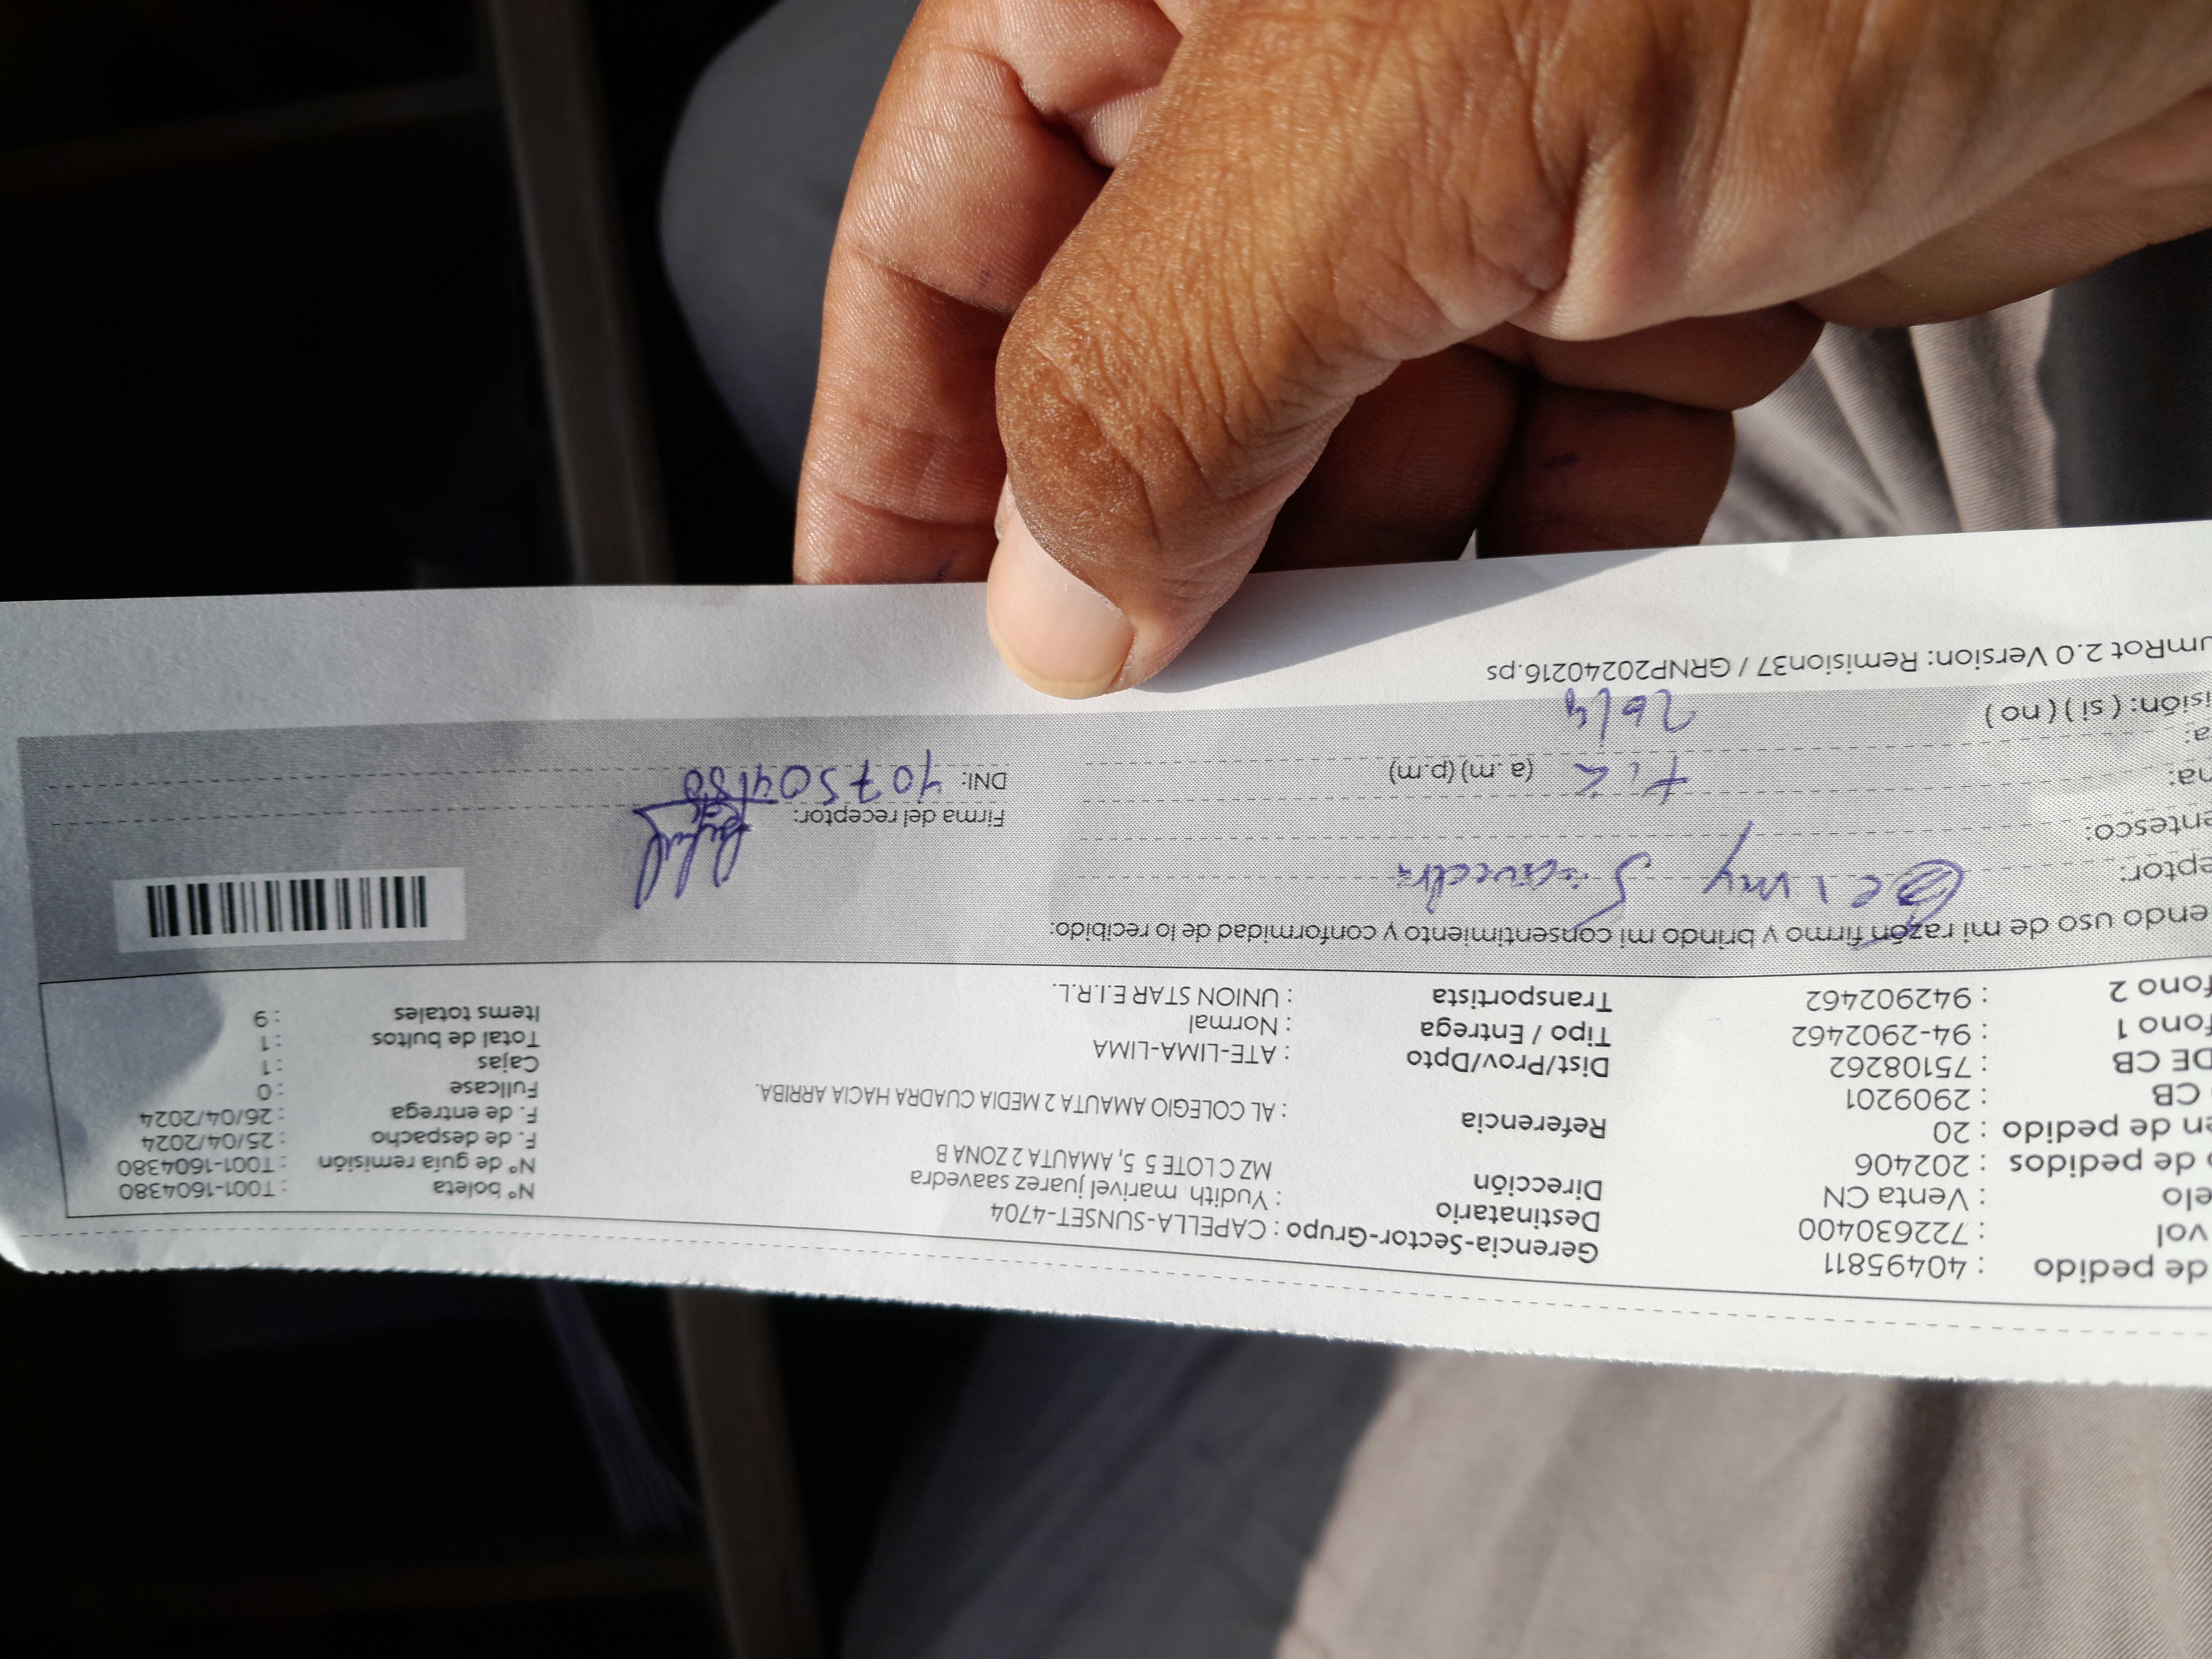 de pedido : 40495811
vol : 722630400
elo : Venta CN
de pedidos : 202406
en de pedido : 20
CB : 2909201
DE CB : 75108262
fono 1 : 94-2902462
fono 2 : 942902462
Gerencia-Sector-Grupo : CAPELLA-SUNSET-4704
Destinatario : Yudith marivel juarez saavedra
Dirección MZ C LOTE 5 5, AMAUTA 2 ZONA B
Referencia : AL COLEGIO AMAUTA 2 MEDIA CUADRA HACIA ARRIBA.
Dist/Prov/Dpto : ATE-LIMA-LIMA
Tipo / Entrega : Normal
Transportista : UNION STAR E.I.R.L.
N° boleta : T001-1604380
N° de guía remisión : T001-1604380
F. de despacho : 25/04/2024
F. de entrega : 26/04/2024
Fullcase : 0
Cajas : 1
Total de bultos : 1
Items totales : 9
endo uso de mi razón firmo y brindo mi consentimiento y conformidad de lo recibido:
eptor: Saavedra
entesco:
na: (a .m) (p.m)
a: 26/4
isión: ( si ) ( no )
Firma del receptor:
DNI:
umRot 2.0 Version: Remision37 / GRNP20240216.ps